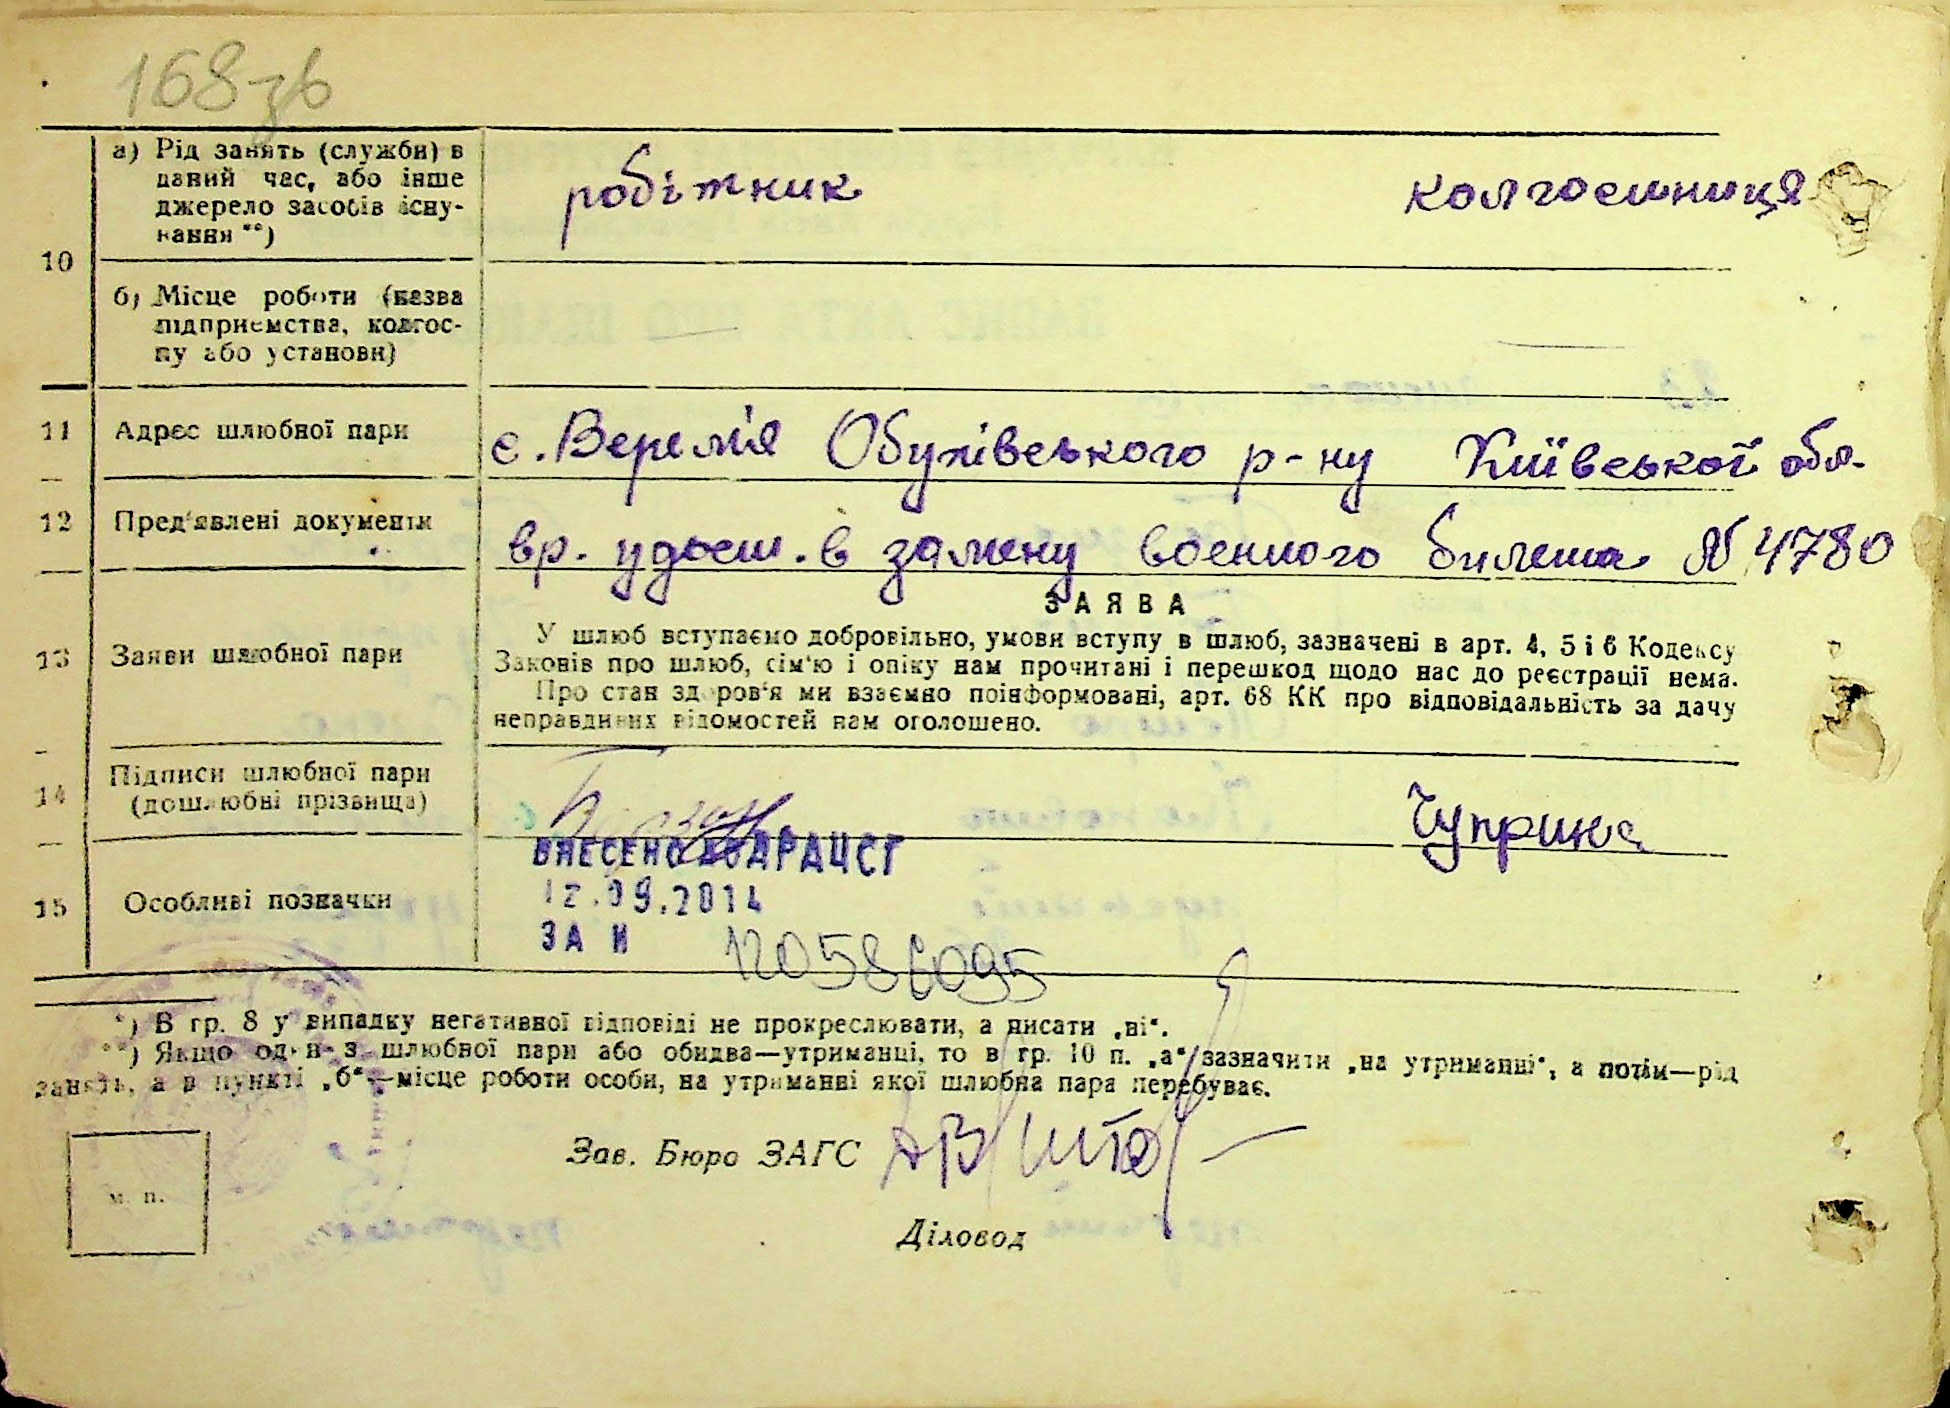 168 зв
а) Рід занять (служби) в
даний час, або інше
джерело засобів існу-
вання **)
робітник колгоспниця
10
б) Місце роботи (назва
підприємства, колгос-
пу або установи)
11 Адрес шлюбної пари с. Веремія Обухівського р-ну Київської обл.
12 Пред'явлені документи вр. удост. в замену военного билета № 4780
ЗАЯВА
13 Заяви шлюбної пари
У шлюб вступаємо добровільно, умови вступу в шлюб, зазначені в арт. 4, 5 і 6 Кодексу
Законів про шлюб, сім'ю і опіку нам прочитані і перешкод щодо нас до реєстрації нема.
Про стан здоров'я ми взаємно поінформовані, арт. 68 КК про відповідальність за дачу
неправдивих відомостей нам оголошено.
14 Підписи шлюбної пари
(дошлюбні прізвища)
Чуприна
ВНЕСЕНО ДО ДРАЦСГ
15 Особливі позначки 12.09.2014
ЗА N 120586095
*) В гр. 8 у випадку негативної відповіді не прокреслювати, а писати „ні“.
**) Якщо один з шлюбної пари або обидва—утриманці, то в гр. 10 п. „а“ зазначити „на утриманні“, а потім—рід
занять, а в пункті „б“—місце роботи особи, на утриманні якої шлюбна пара перебуває.
Зав. Бюро ЗАГС
м. п.
Діловод